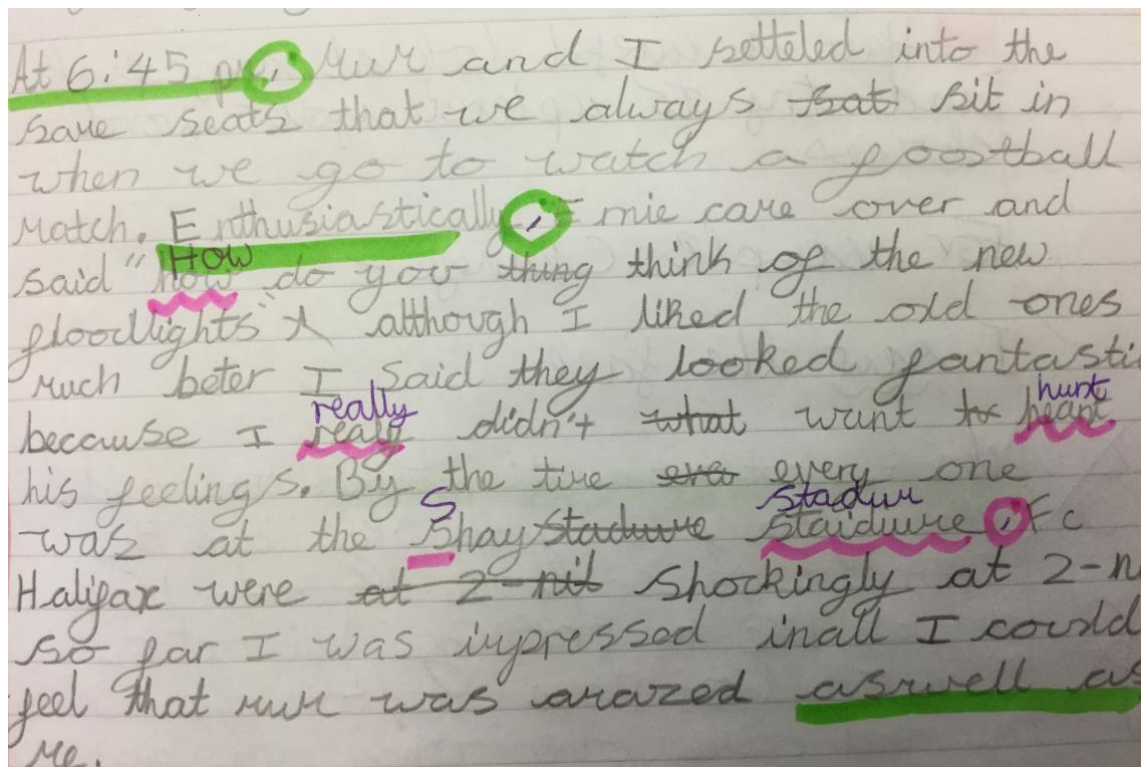 At 6:45 pm, Mum and I setteled into the
same seats that we always sat sit in
when we go to watch a foostball
match. Enthusiastically, Emie came over and
said "How how do you thing think of the new
floodlights" although I liked the old ones
much beter I said they looked fantasti
because I really realy didn't what want to hurt
his feelings. By the time every one
was at the Shay stadiume stadium staidiume, Fc
Halifax were at 2-nil shockingly at 2-n
so far I was impressed inall I could
feel that mum was amazed aswell as
me.